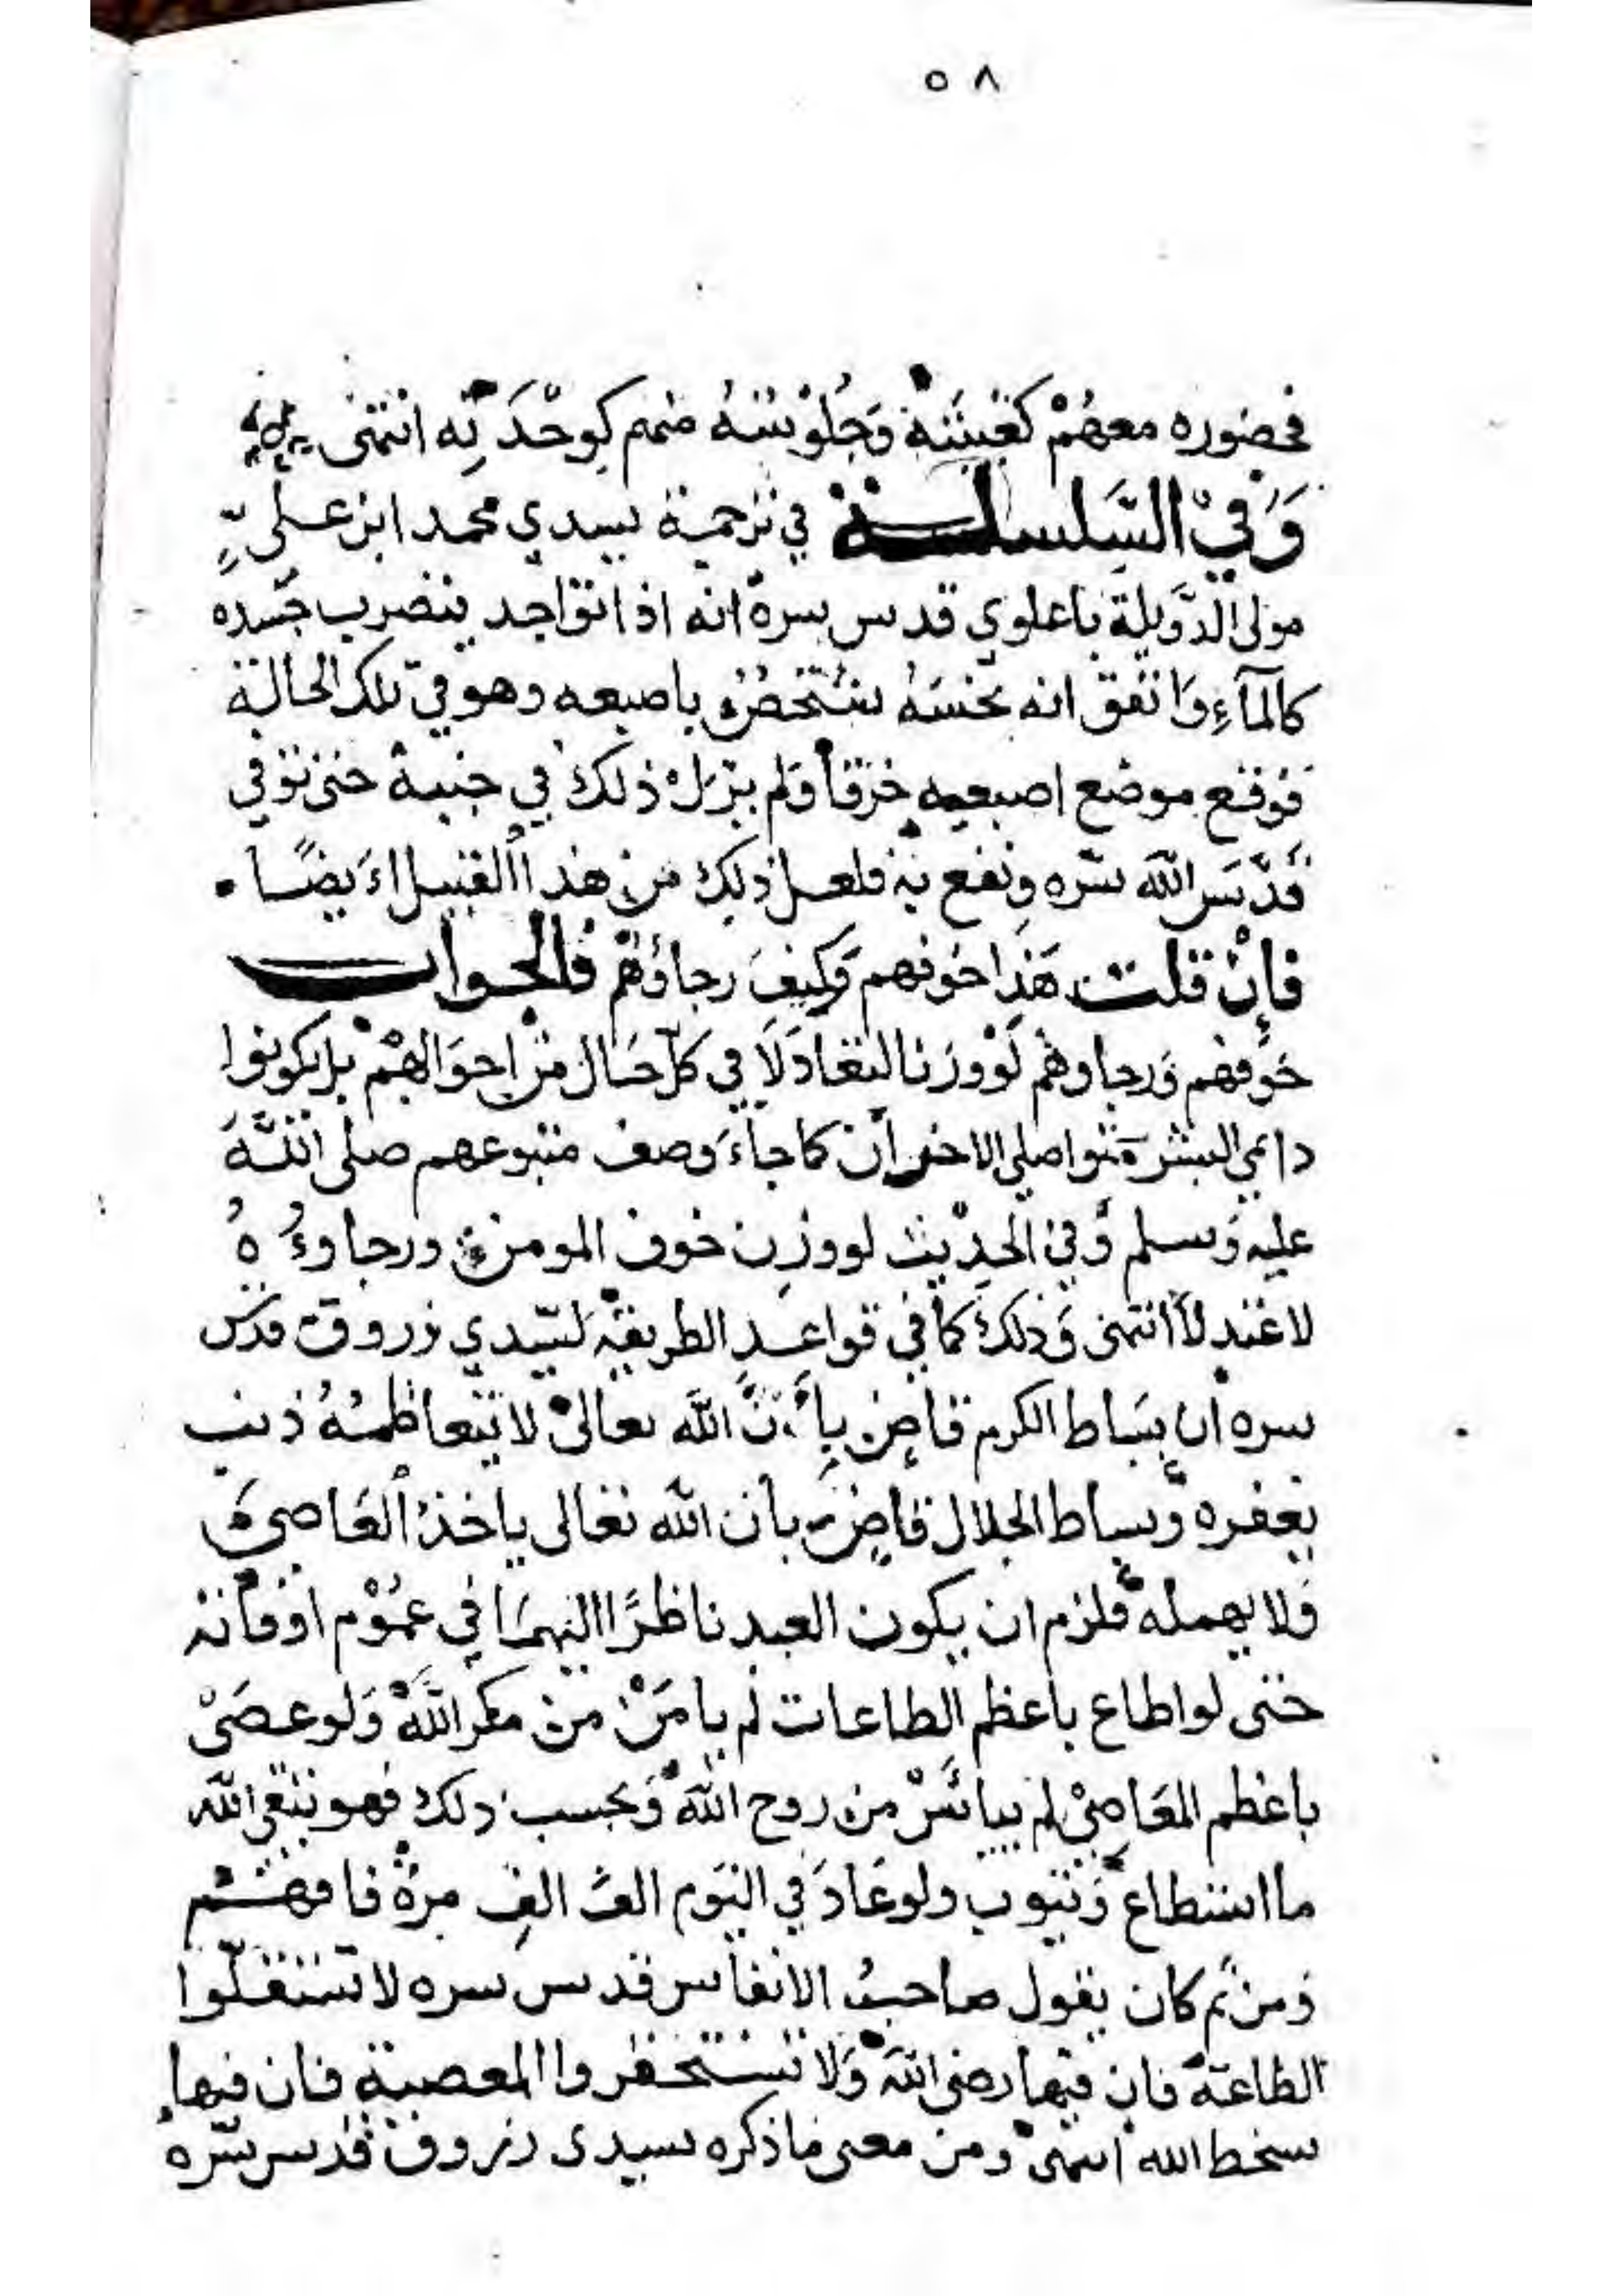 ٥٨
فحضوره معهم كغيبته وجلوسه منهم كوحدته انتهى
وَفي السلسلة في ترجمة سيدي محمد ابن علي
مولى الدَّويلة باعلوي قدس سره انه اذا تواجد ينضرب جسده
كالمآءِ وَاتفق انه نخسَهُ شخصٌ باصبعه وهو في تلك الحالة
فوقع موضع اصبعه خرقا ولم يزل ذلك في جنبه حتى توفي
قدَّسَ الله سرّه ونفع به فلعل ذلك من هذا القبيل ايضًا
فإنْ قلت هَذا خوفهم وَكيفَ رجاؤهم فالجواب
خَوفهم وَرجاوهم لَوْ وزنا لتعادَلَا في كلّ حَال من احوَالهِمْ بل يكونوا
دايمي البشر متواصلي الاحزان كما جاءَ وصف متبوعهم صلى اللَّهُ
عليه وَسلم وَفي الحديث لو وزِن خوف المومن ورجاوءُهُ
لاعتدلا انتهى وَذلك كما في قواعدِ الطريقه لسَيّدي زروق قدس
سره ان بسَاط الكرم قاضٍ بِأَنَّ اللَّه تعالىْ لا يتعاظمُهُ ذنب
يغفره وَبساط الجلال قاضٍ بأن الله تعالى ياخذُ العَاصي
وَلا يهمله فلزم ان يكون العبد ناظرًا اليهمَا في عمُوْم اوقاته
حتى لو اطاع باعظم الطاعات لم يامَنْ من مكر اللَّه وَلو عصَىْ
باعظم المعَاصِيْ لم ييأسْ من روح اللَّه وَبحسب ذلك فهو يتقي الله
ما استطاع وَيتوب ولو عَادَ في اليَوم الفَ الفِ مرة فافهم
وَمن ثم كان يقول صاحبُ الانفاس قدس سره لا تستقلّوا
الطاعة فان فيها رضى اللَّه وَلا تستحقروا المعصية فان فيها
سخط الله انتهى ومن معنى ما ذكره سيدى زروق قدس سّره